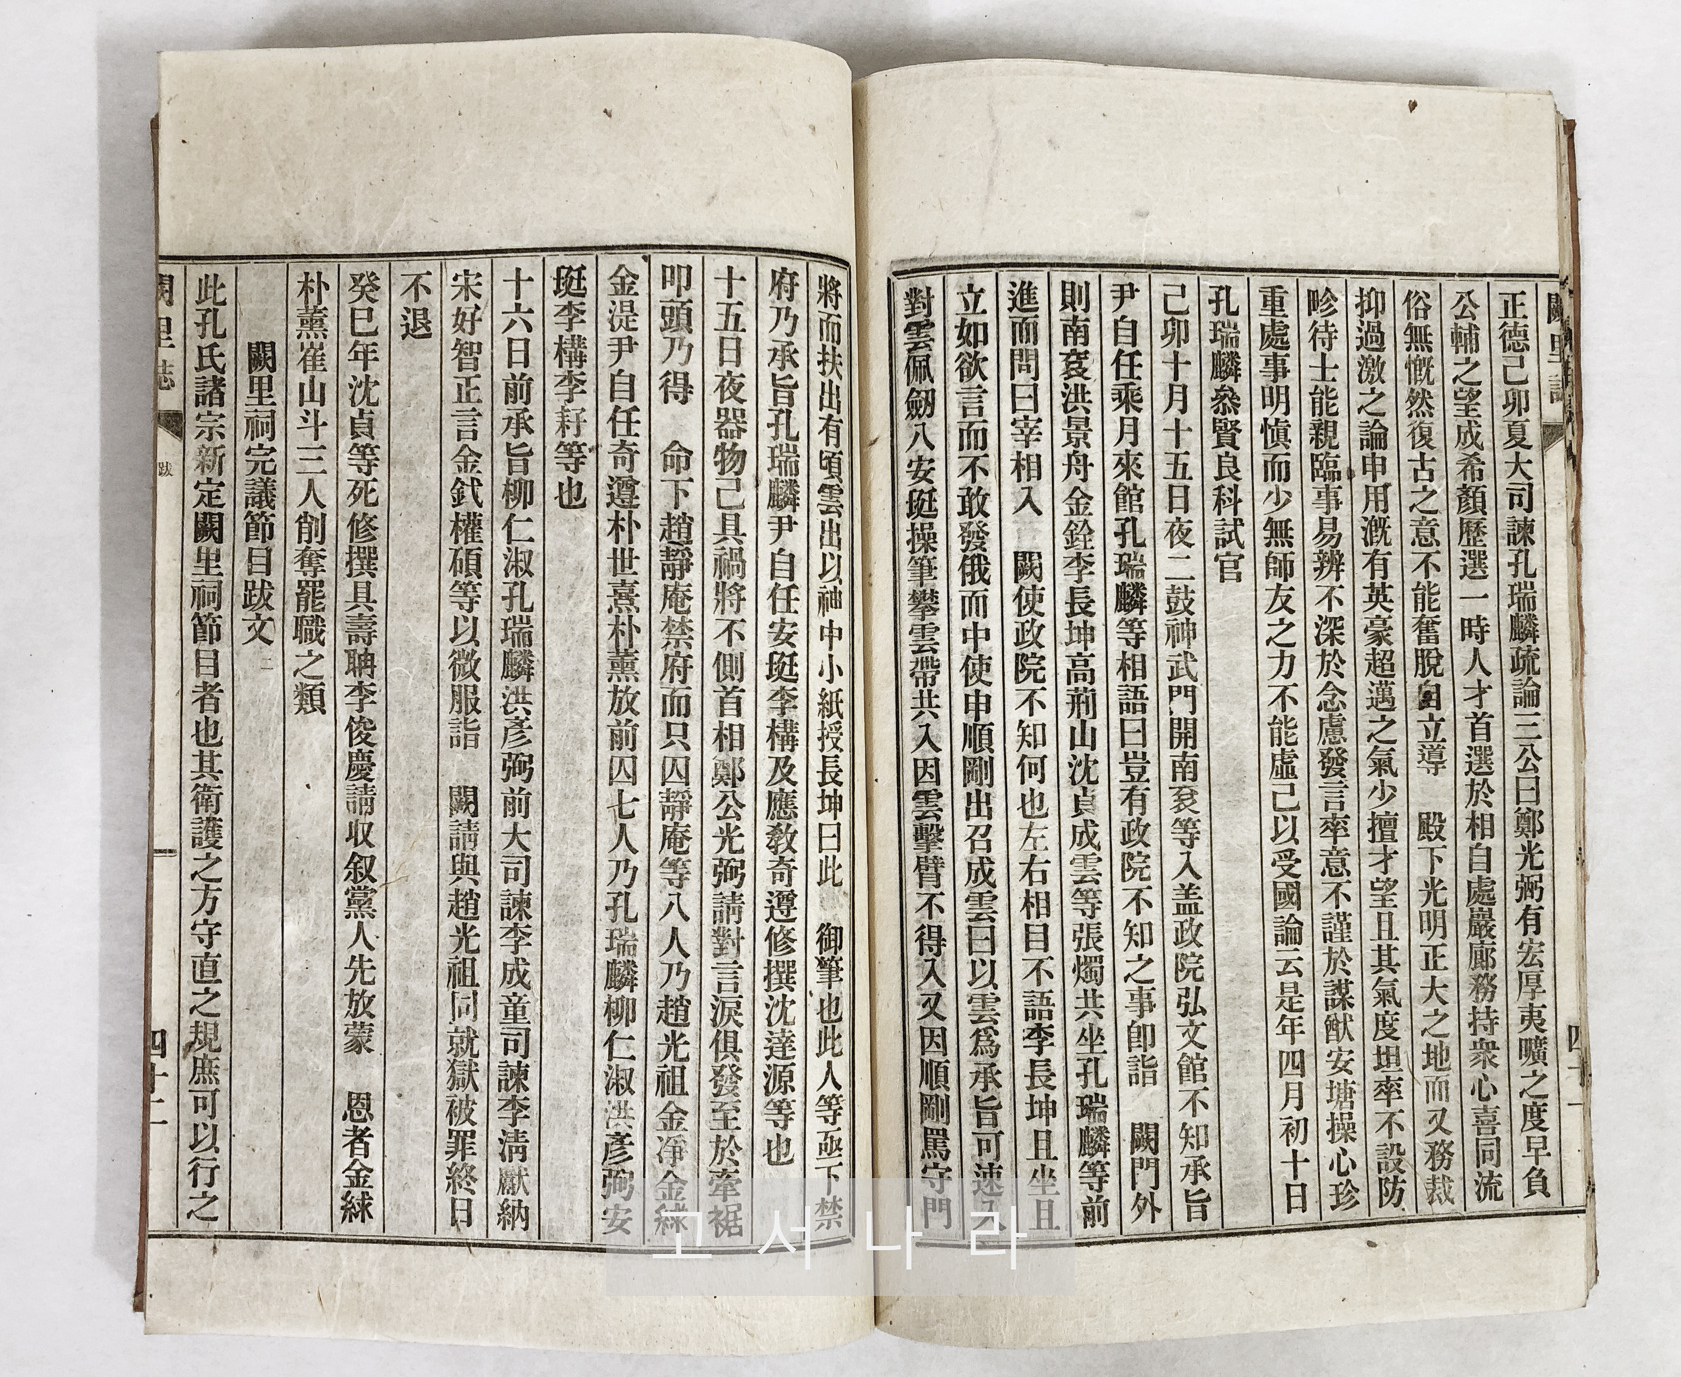 正德己卯夏大司諫孔瑞麟疏論三公曰鄭光弼有宏厚夷曠之度早負
公輔之望成希顏歷選一時人才首選於相自處巖廊務持衆心喜同流
俗無慨然復古之意不能奮脫立導 殿下光明正大之地而又務裁
抑過激之論申用漑有英豪超邁之氣少擅才望且其氣度坦率不設防
畛待士能親臨事易辨不深於念慮發言率意不謹於謀猷安塘操心珍
重處事明愼而少無師友之力不能虛己以受國論云是年四月初十日
孔瑞麟叅賢良科試官
己卯十月十五日夜二鼓神武門開南袞等入盖政院弘文館不知承旨
尹自任乘月來館孔瑞麟等相語曰豈有政院不知之事卽詣 闕門外
則南袞洪景舟金銓李長坤高荊山沈貞成雲等張燭共坐孔瑞麟等前
進而問曰宰相入 闕使政院不知何也左右相目不語李長坤且坐且
立如欲言而不敢發俄而中使申順剛出召成雲曰以雲爲承旨可速入
對雲佩劒入安珽操筆攀雲帶共入因雲擊臂不得入又因順剛罵守門
將而扶出有頃雲出以袖中小紙授長坤曰此 御筆也此人等亟下禁
府乃承旨孔瑞麟尹自任安珽李構及應敎奇遵修撰沈達源等也
十五日夜器物己具禍將不側首相鄭公光弼請對言淚俱發至於牽裾
叩頭乃得 命下趙靜庵禁府而只囚靜庵等八人乃趙光祖金淨金絿
金湜尹自任奇遵朴世熹朴薰放前囚七人乃孔瑞麟柳仁淑洪彥弼安
珽李構李耔等也
十六日前承旨柳仁淑孔瑞麟洪彥弼前大司諫李成童司諫李淸獻納
宋好智正言金釴權碩等以微服詣 闕請與趙光祖同就獄被罪終日
不退
癸巳年沈貞等死修撰具壽聃李俊慶請収叙黨人先放蒙 恩者金絿
朴薰崔山斗三人削奪罷職之類
闕里祠完議節目跋文二
此孔氏諸宗新定闕里祠節目者也其衛護之方守直之規庶可以行之
闕里誌
跋
四十二
고서나라